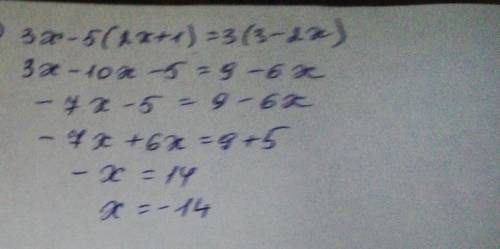 ) 3x-5(2x+1)=3(3-2x)
3x-10x-5=9-6x
-7x-5=9-6x
-7x+6x=9+5
-x=14
x=-14